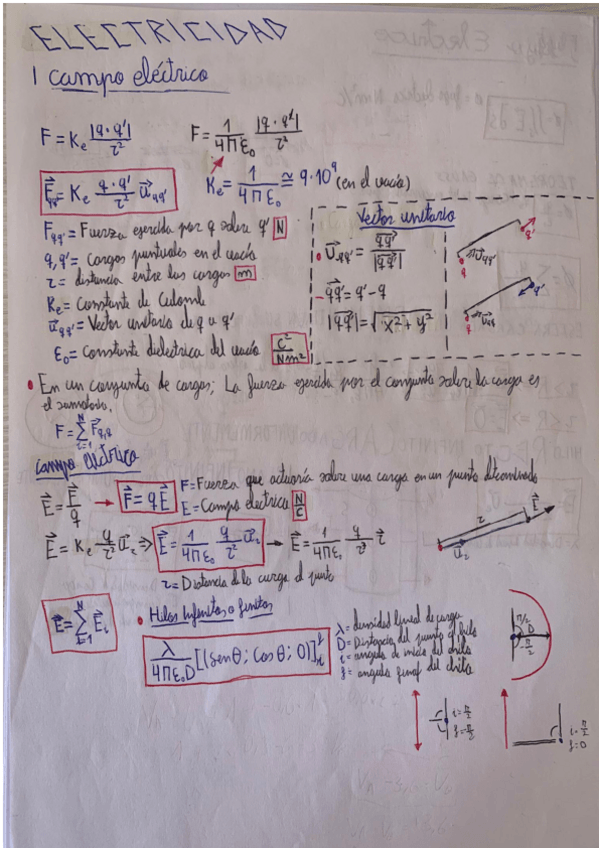 ELECTRICIDAD
1 campo eléctrico
F = Ke |q·q'| / r²    F = 1/4πε₀ |q·q'| / r²
F⃗qq' = Ke q·q' / r² u⃗qq'    Ke = 1/4πε₀ ≅ 9·10⁹ (en el vacío)
Fqq' = Fuerza ejercida por q sobre q' N
q, q' = Cargas puntuales en el vacío
r = distancia entre las cargas m
Ke = Constante de Culomb
u⃗qq' = Vector unitario de q a q'
ε₀ = Constante dielectrica del vacío C²/Nm²
Vector unitario
u⃗qq' = qq'⃗ / |qq'⃗|
qq'⃗ = q' - q
|qq'⃗| = √x² + y²
q' u⃗qq' q
q' u⃗qq' q
• En un conjunto de cargas; La fuerza ejercida por el conjunto sobre la carga es
el sumatorio.
F = Σ F⃗ N i=1
campo eléctrico
E⃗ = F⃗/q → F⃗ = qE⃗    F = Fuerza que actuaría sobre una carga en un punto determinado
E = Campo electrico N/C
E⃗ = Ke q/r² u⃗r ⇒ E⃗ = 1/4πε₀ q/r² u⃗r → E⃗ = 1/4πε₀ q/r³ r⃗
r E⃗ u⃗r
r = Distancia de la carga al punto
E⃗ = Σ E⃗i N i=1
• Hilos Infinitos o finitos
λ/4πε₀D [(senθ; cosθ; 0)]
λ = densidad lineal de carga
D = Distancia del punto al hilo
i = angulo de inicio del hilo
f = angulo final del hilo
π/2 D -π/2
i = π/2
f = -π/2
i = π/2
f = 0